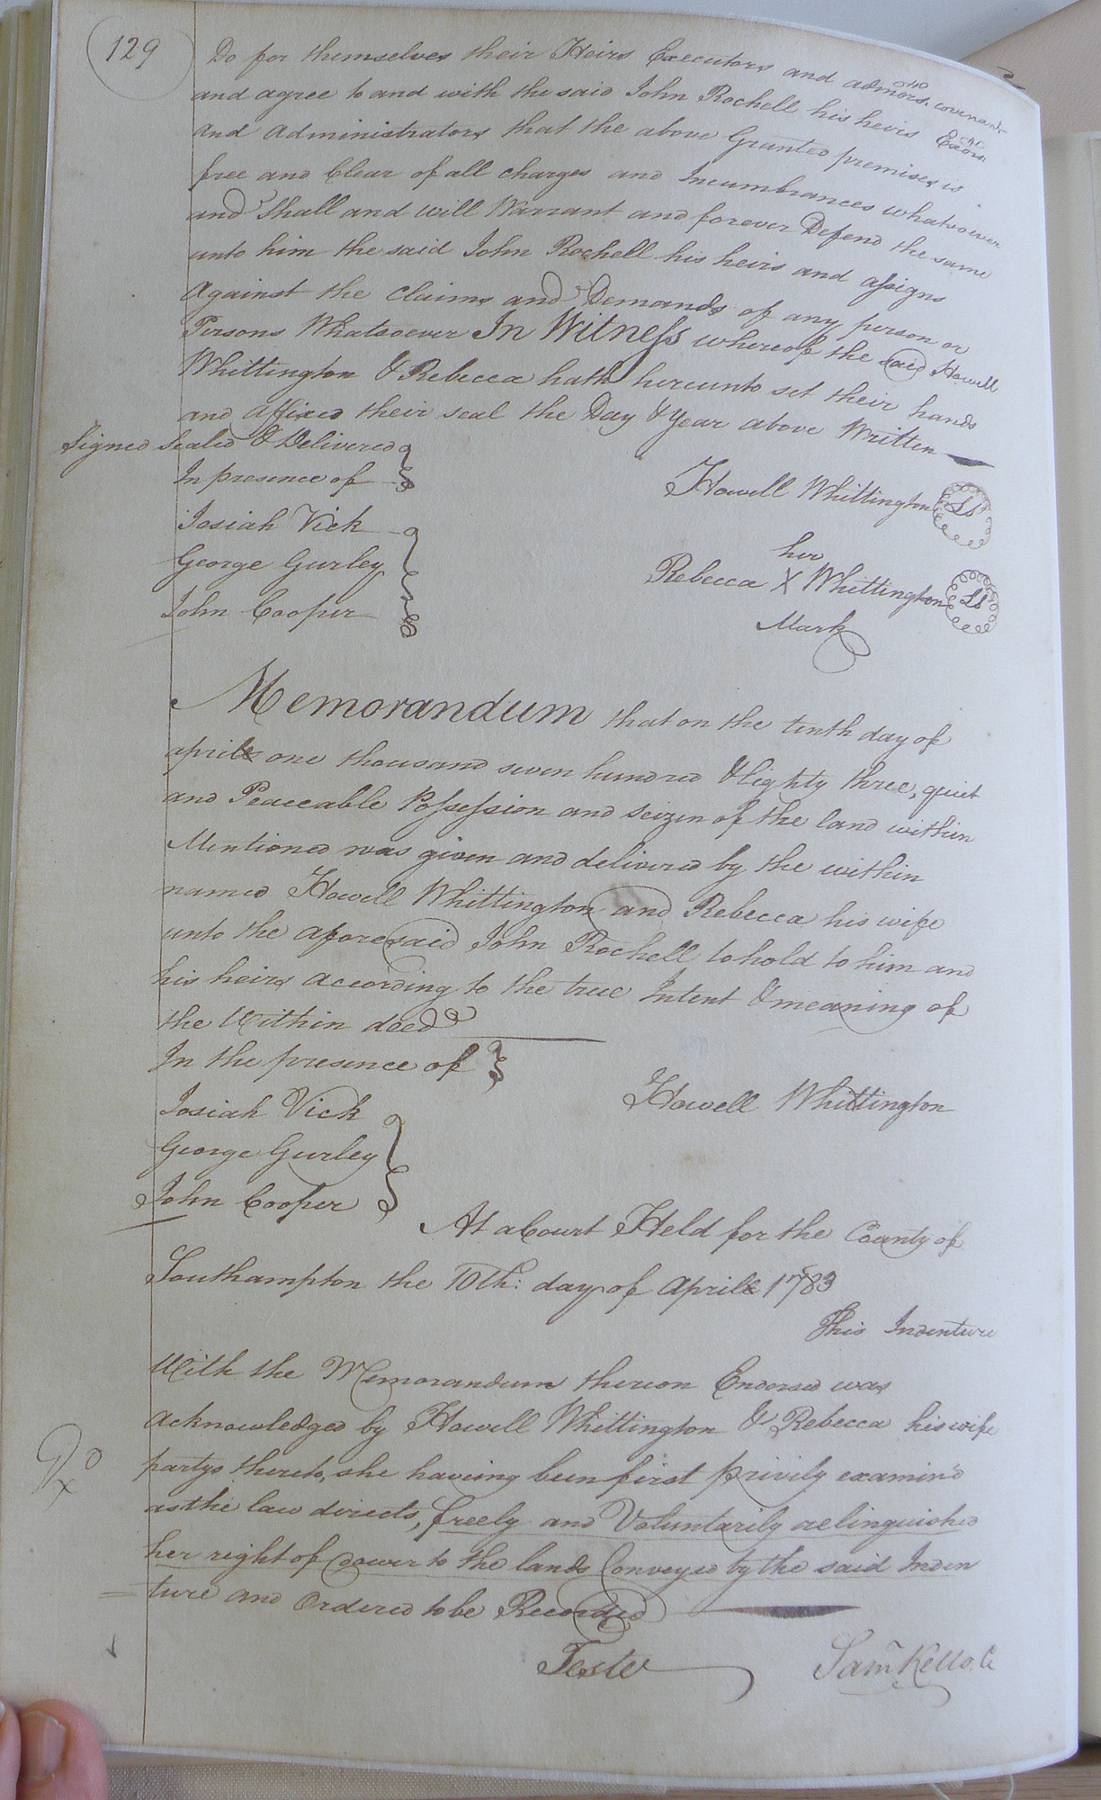 129
Do for themselves their Heirs Executors and admors. covenant
and agree to and with the said John Rochell his heirs Exors
and Administrators that the above Granted premises is
free and Clear of all charges and Incumbrances whatsoever
and Shall and will Warrant and forever Defend the same
unto him the said John Rochell his heirs and assigns
Against the Claims and Demands of any person or
Persons Whatsoever In Witness whereof the said Howell
Whittington & Rebecca hath hereunto set their hands
and affixed their seal the Day & Year above Written
Signed Sealed & Delivered
In presence of
Howell Whittington LS
Josiah Vick
George Gurley
her
Rebecca X Whittington LS
John Cooper
Mark
Memorandum that on the tenth day of
april one thousand seven hundred & Eighty three, quiet
and Peaceable Possession and seizen of the land within
Mentioned was given and delivered by the within
named Howell Whittington and Rebecca his wife
unto the aforesaid John Rochell to hold to him and
his heirs according to the true Intent & meaning of
the Within deed
In the presence of
Howell Whittington
Josiah Vick
George Gurley
John Cooper
At a Court Held for the County of
Southampton the 10th: day of April 1783
This Indenture
With the Memorandum thereon Endorsed was
Acknowledged by Howell Whittington & Rebecca his wife
partys thereto, she haveing been first privily examin'd
as the law directs, freely and Voluntarily relinquished
her right of dower to the lands Conveyed by the said Inden
ture and Ordered to be Recorded
Teste
Saml Kello C